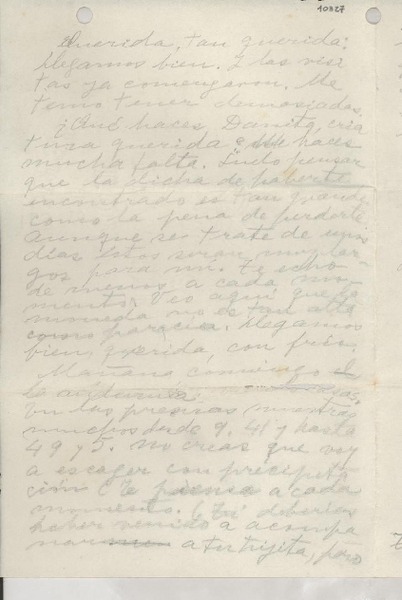 10327
Querida, tan querida:
Llegamos bien. I las visi
tas ya comenzaron. Me
temo tener demasiadas.
¿Qué haces, Danita, cria
tura querida? Me haces
mucha falta. Suelo pensar
que la dicha de haberte
encontrado es tan grande
como la pena de perderte
aunque se trate de unos
días. Estos serán muy lar
gos para mí. Te echo
de menos a cada mo-
mento. Veo aquí que la
moneda no es tan alta
como parecía. Llegamos
bien, querida, con frío.
Mañana comienzo
la aventura casas.
En las
muchos desde 9, 41 y hasta
49 y 5. No creas que voy
a escoger con precipita-
ción. Te pienso a cada
momento. (Tú deberías
haber venido a acompa
ñar a tu hijita, pero